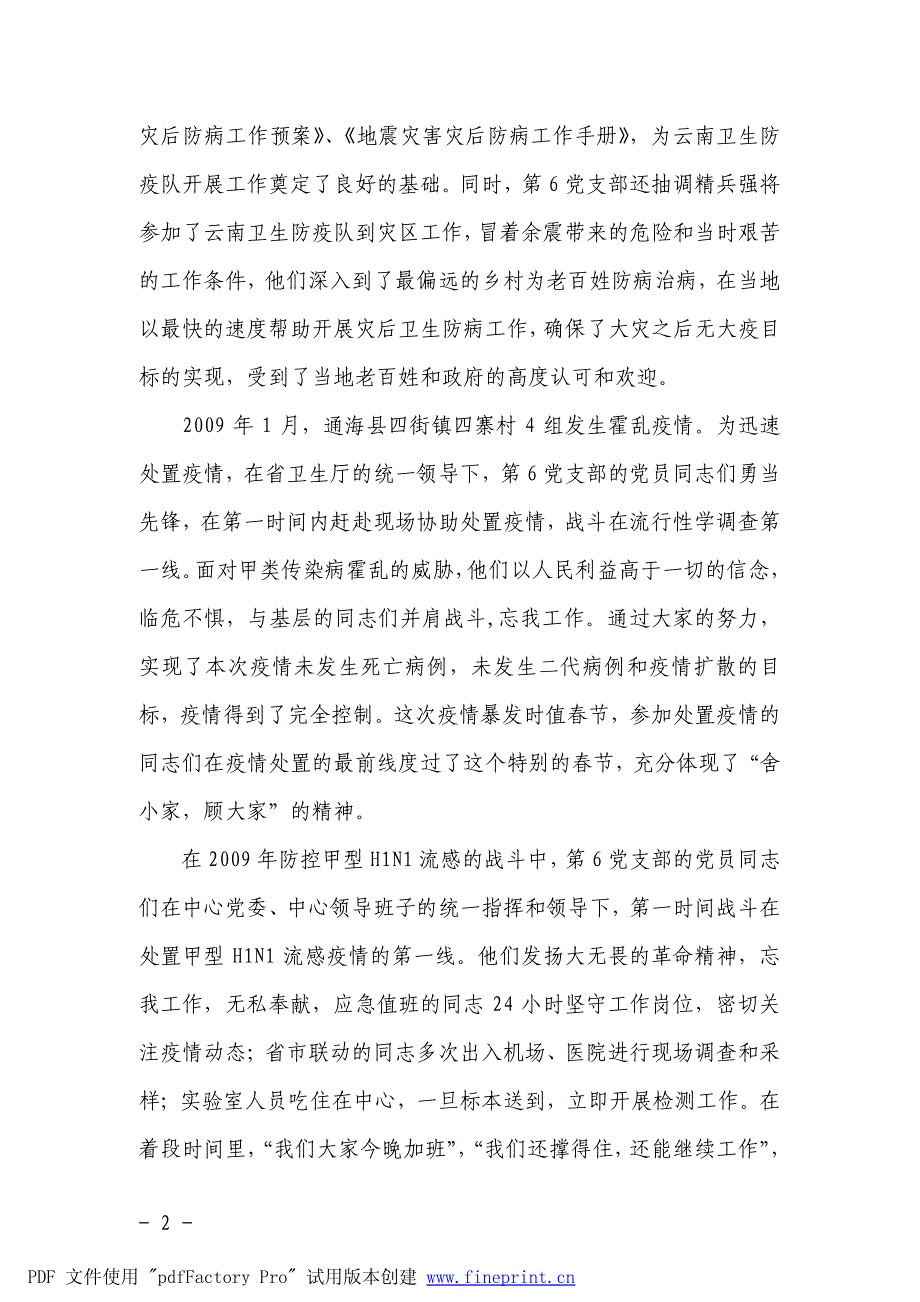 灾后防病工作预案》、《地震灾害灾后防病工作手册》，为云南卫生防
疫队开展工作奠定了良好的基础。同时，第 6 党支部还抽调精兵强将
参加了云南卫生防疫队到灾区工作，冒着余震带来的危险和当时艰苦
的工作条件，他们深入到了最偏远的乡村为老百姓防病治病，在当地
以最快的速度帮助开展灾后卫生防病工作，确保了大灾之后无大疫目
标的实现，受到了当地老百姓和政府的高度认可和欢迎。
2009 年 1 月，通海县四街镇四寨村 4 组发生霍乱疫情。为迅速
处置疫情，在省卫生厅的统一领导下，第 6 党支部的党员同志们勇当
先锋，在第一时间内赶赴现场协助处置疫情，战斗在流行性学调查第
一线。面对甲类传染病霍乱的威胁，他们以人民利益高于一切的信念，
临危不惧，与基层的同志们并肩战斗,忘我工作。通过大家的努力，
实现了本次疫情未发生死亡病例，未发生二代病例和疫情扩散的目
标，疫情得到了完全控制。这次疫情暴发时值春节，参加处置疫情的
同志们在疫情处置的最前线度过了这个特别的春节，充分体现了“舍
小家，顾大家”的精神。
在 2009 年防控甲型 H1N1 流感的战斗中，第 6 党支部的党员同志
们在中心党委、中心领导班子的统一指挥和领导下，第一时间战斗在
处置甲型 H1N1 流感疫情的第一线。他们发扬大无畏的革命精神，忘
我工作，无私奉献，应急值班的同志 24 小时坚守工作岗位，密切关
注疫情动态；省市联动的同志多次出入机场、医院进行现场调查和采
样；实验室人员吃住在中心，一旦标本送到，立即开展检测工作。在
着段时间里，“我们大家今晚加班”，“我们还撑得住，还能继续工作”，
- 2 -
PDF 文件使用 "pdfFactory Pro" 试用版本创建 www.fineprint.cn